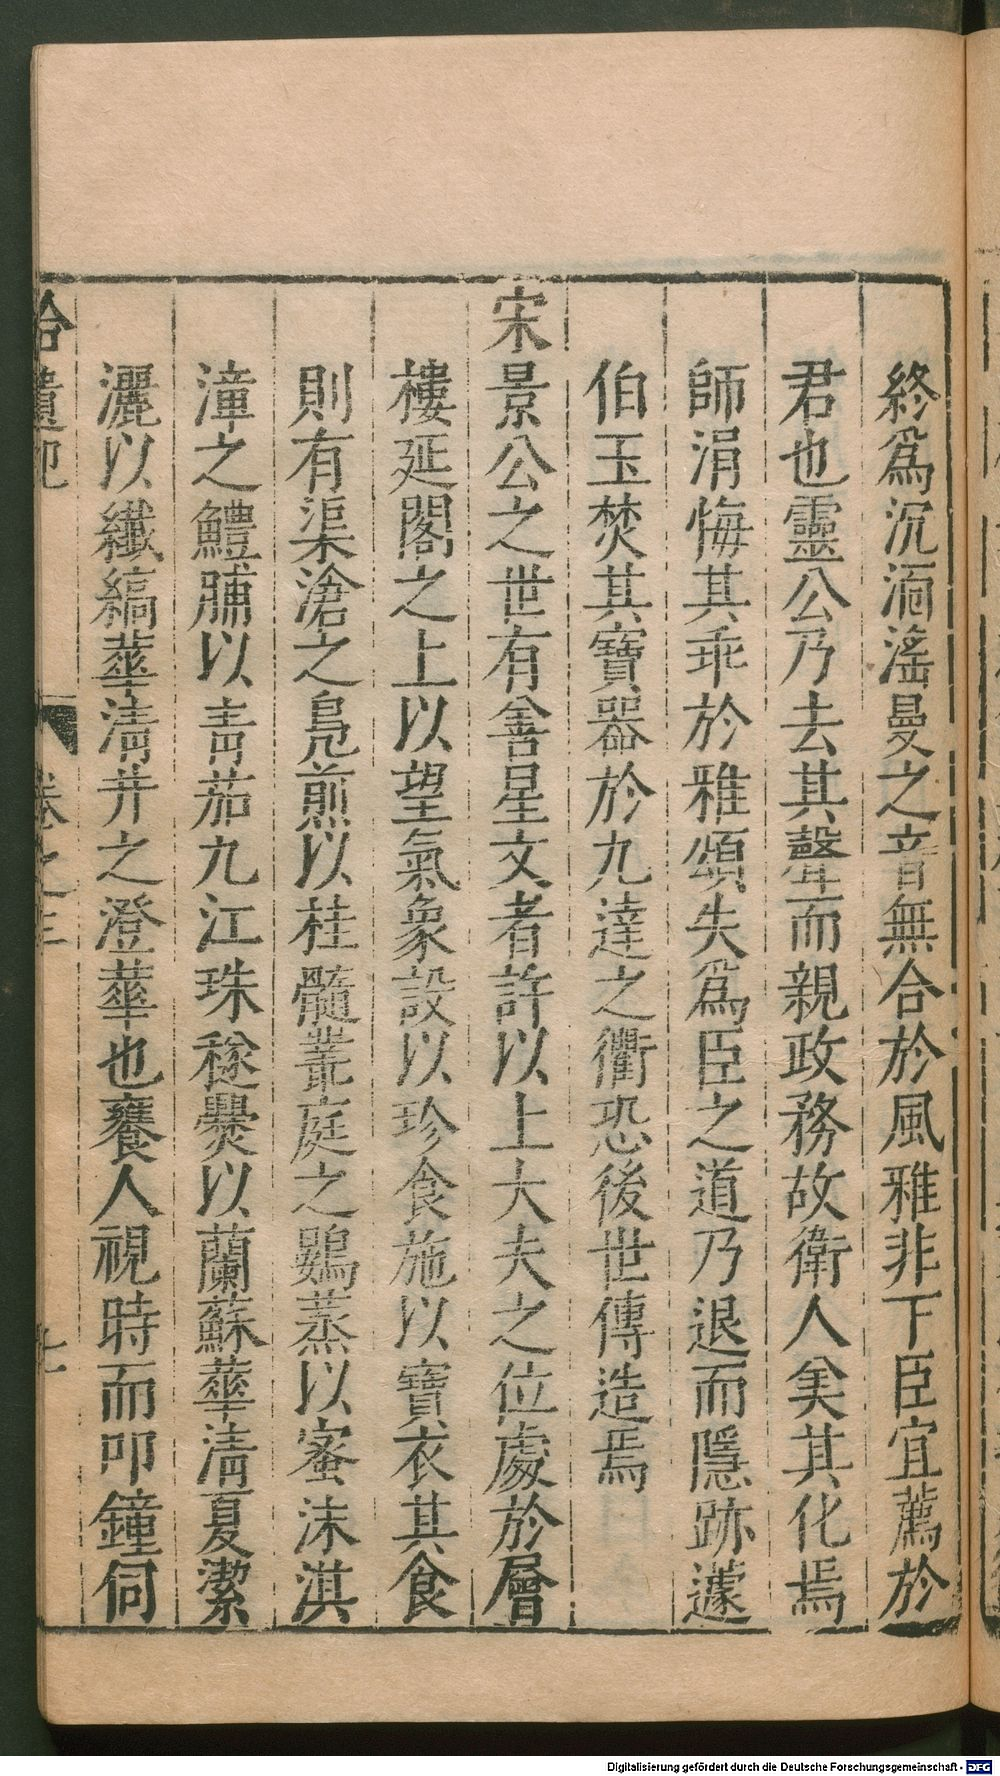 終爲沉湎滛曼之音無合於風雅非下臣宜薦於
君也靈公乃去其聲而親政務故衛人美其化焉
師涓悔其乖於雅頌失爲臣之道乃退而隱跡蘧
伯玉焚其寶器於九達之衢恐後世傳造焉
宋景公之世有善星文者許以上大夫之位處於層
樓延閣之上以望氣象設以珍食施以寶衣其食
則有渠滄之鳧煎以桂髓叢庭之鷃蒸以蜜沫淇
漳之鱧脯以青茄九江珠穟爨以蘭蘇華清夏潔
灑以纖縞華清井之澄華也饔人視時而叩鐘伺
拾遺記 卷之三 七
Digitalisierung gefördert durch die Deutsche Forschungsgemeinschaft - DFG